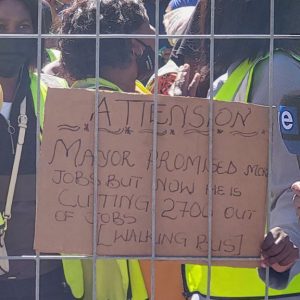 ATTENSION
MAYOR PROMISED MOR
JOBS BUT NOW HE IS
CUTTING 2700 OUT
OF JOBS
[WALKING BUS]
e